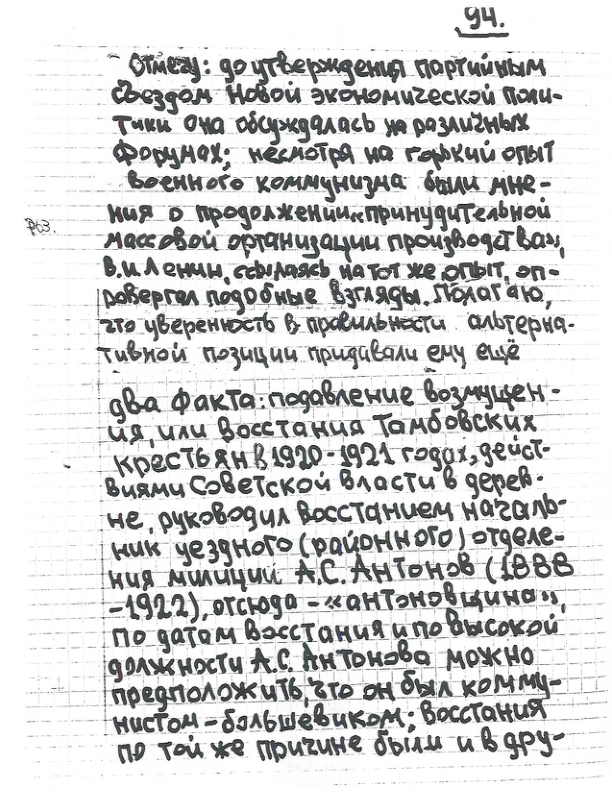 94.
Отмечу: до утверждения партийным
съездом новой экономической поли-
тики она обсуждалась на различных
форумах; несмотря на горький опыт
военного коммунизма были мне-
ния о продолжении «принудительной
массовой организации производства»,
В.И Ленин, ссылаясь на тот же опыт, оп-
ровергал подобные взгляды. Полагаю,
что уверенность в правильности альтерна-
тивной позиции придавали ему ещё
два факта: подавление возмущен-
ия, или восстания Тамбовских
крестьян в 1920-1921 годах, дейст-
виями Советской власти в дерев-
не, руководил восстанием началь-
ник уездного (районного) отделе-
ния милиции А.С. Антонов (1888
-1922), отсюда - «антоновщина»,
по датам восстания и по высокой
должности А.С. Антонова можно
предположить, что он был комму-
нистом - большевиком; восстания
по той же причине были и в дру-